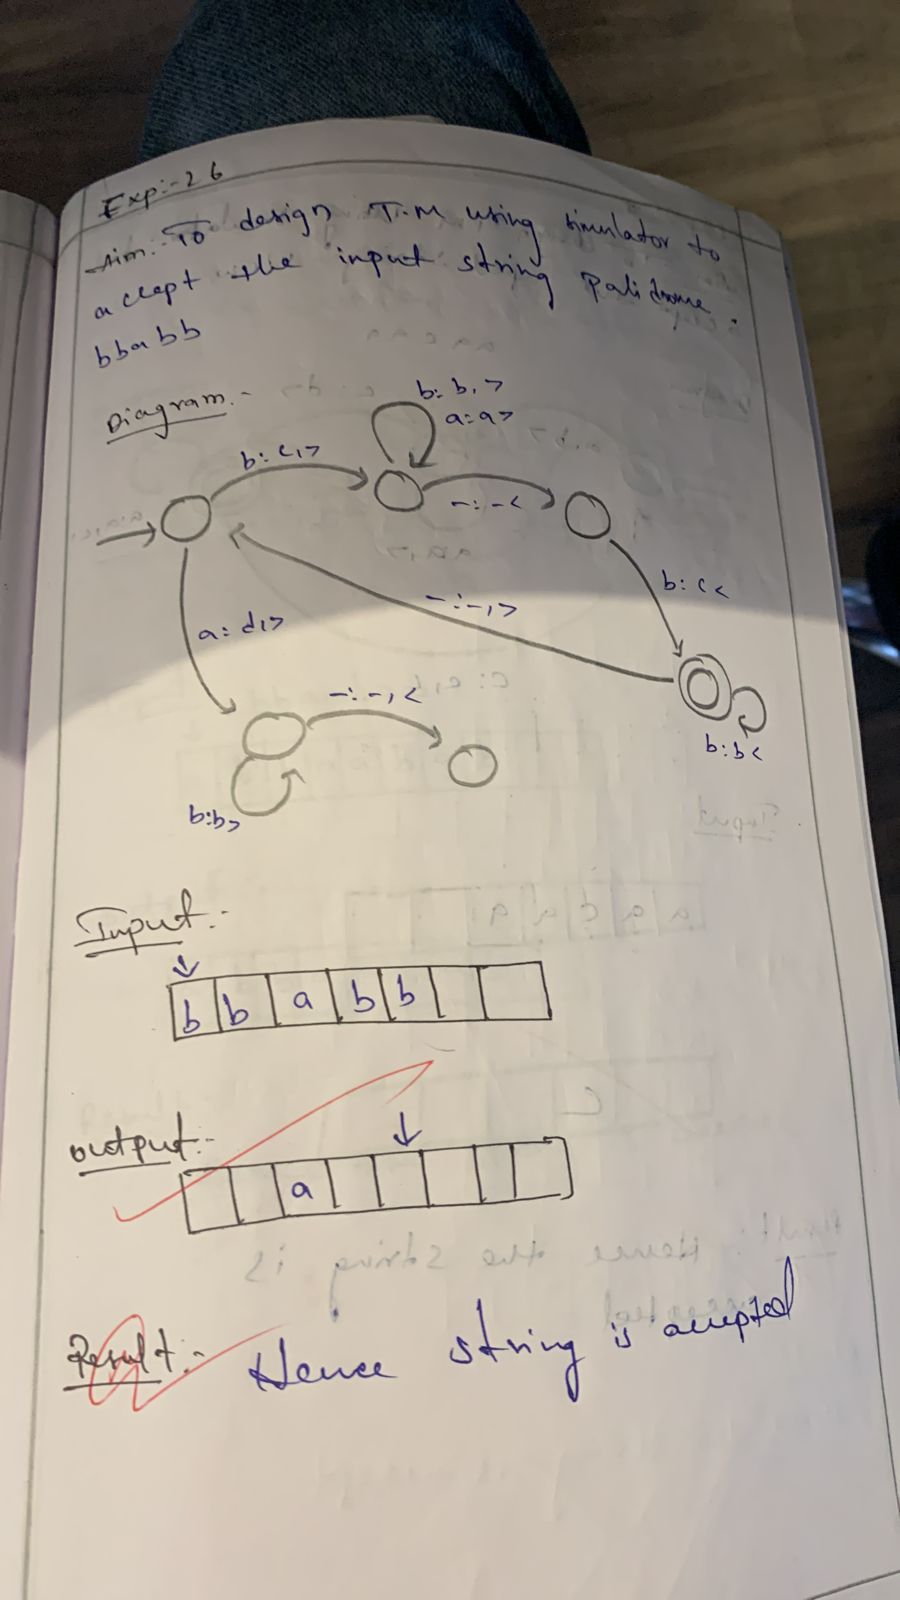 Exp:-26
Aim: To design T.M using simulator to
accept the input string palidrome :
bbabb
Diagram:-
b: b, >
a: a>
b: c, >
-: -<
b: c<
-: -, >
a: d, >
-: -, <
b: b<
b: b>
Input:-
b b a b b
output:-
a
Result:- Hence string is accepted